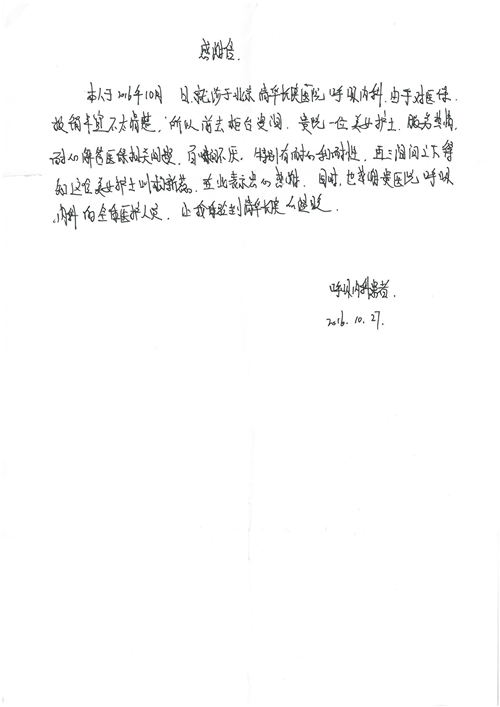 感谢信.
本人于2016年10月 日就诊于北京清华长庚医院呼吸内科.由于对医保.
报销事宜不太清楚,所以前去柜台询问.贵院一位美女护士.服务热情,
耐心解答医保相关问题,百问不厌.特别有耐心和耐性,再三询问之下得
知这位美女护士叫,在此表示衷心感谢.同时,也感谢贵医院呼吸
内科的全体医护人员,让我体验到清华长庚
呼吸内科患者.
2016.10.27.